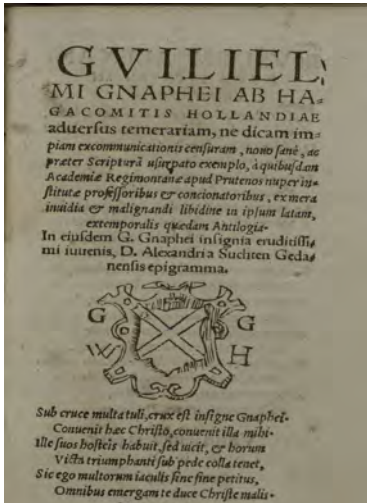 GVILIEL,
MI GNAPHEI AB HA-
GACOMITIS HOLLANDIAE
adversus temerariam, ne dicam im-
piam excommunicationis censuram, nouo sanè, ac
præter Scripturã usurpato exemplo, à quibusdam
Academiæ Regimontanæ apud Prutenos nuper in-
stitutæ professoribus & concionatoribus, ex mera
inuidia & malignandi libidine in ipsum latam,
extemporalis quædam Antilogia.
In eiusdem G. Gnaphei insignia eruditissi-
mi iuuenis, D. Alexandri a Suchten Geda-
nensis epigramma.
G G
H
Sub cruce multa tuli, crux est insigne Gnaphei.
Conuenit hæc Christo, conuenit illa mihi.
Ille suos hosteis habuit, sed uicit, & horum
Victa triumphanti sub pede colla tenet,
Sic ego multorum iaculis sine fine petitus,
Omnibus emergam te duce Christe malis.